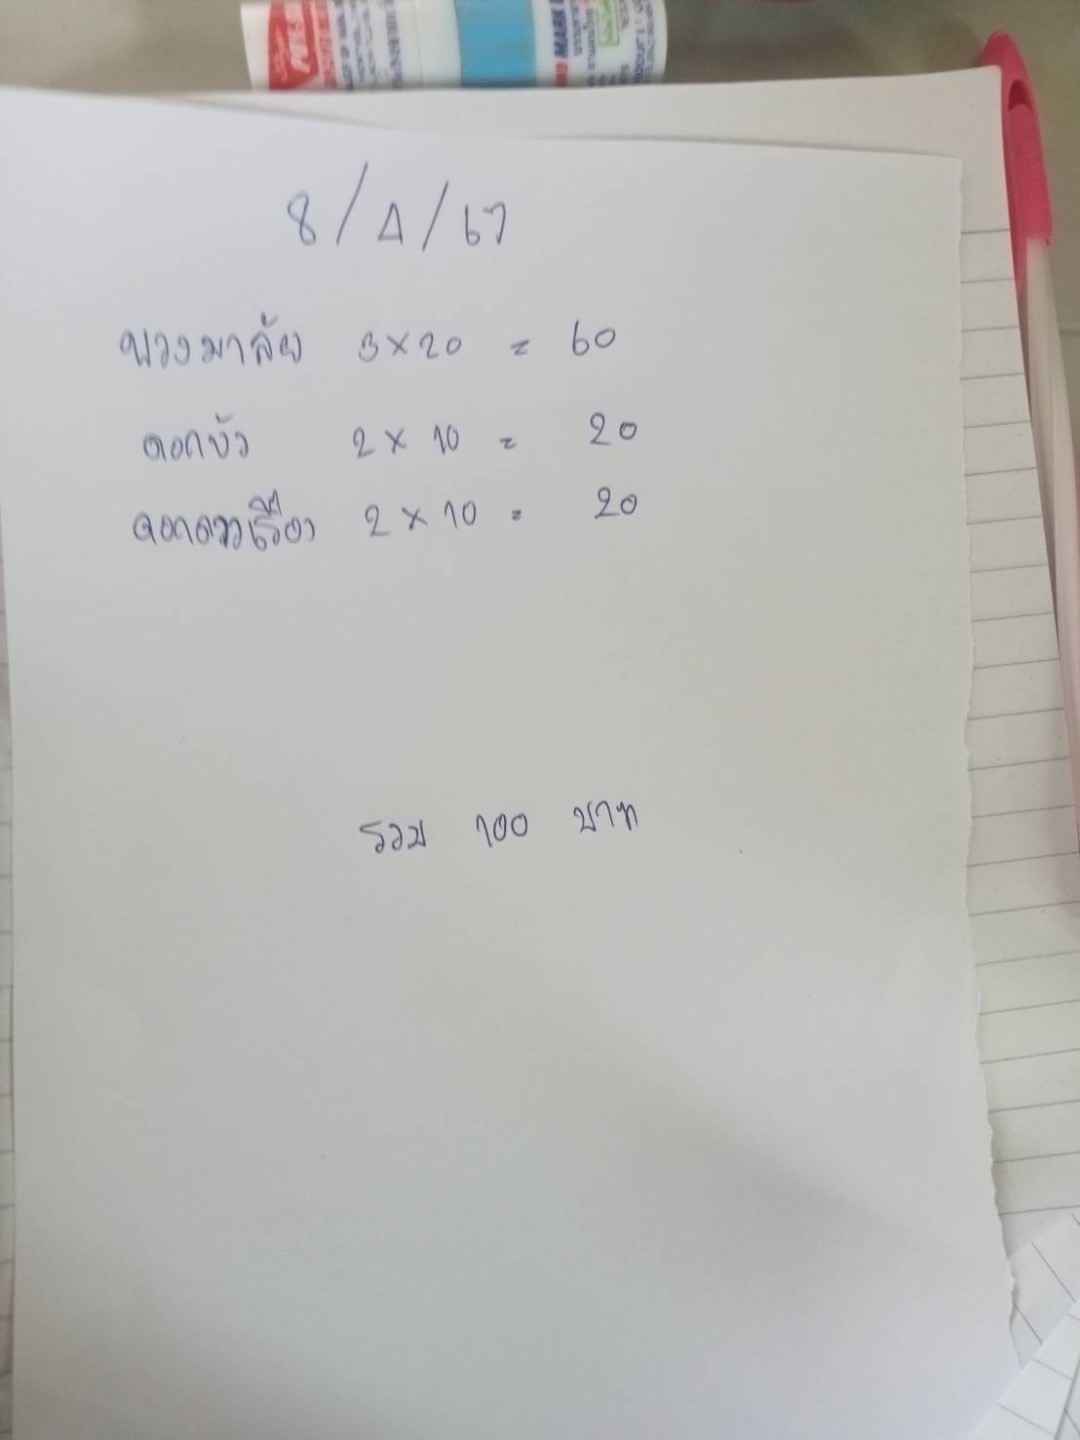 8/4/67
พวงมาลัย 3×20 = 60
ดอกบัว 2×10 = 20
ดอกดาวเรือง 2×10 = 20
รวม 100 บาท